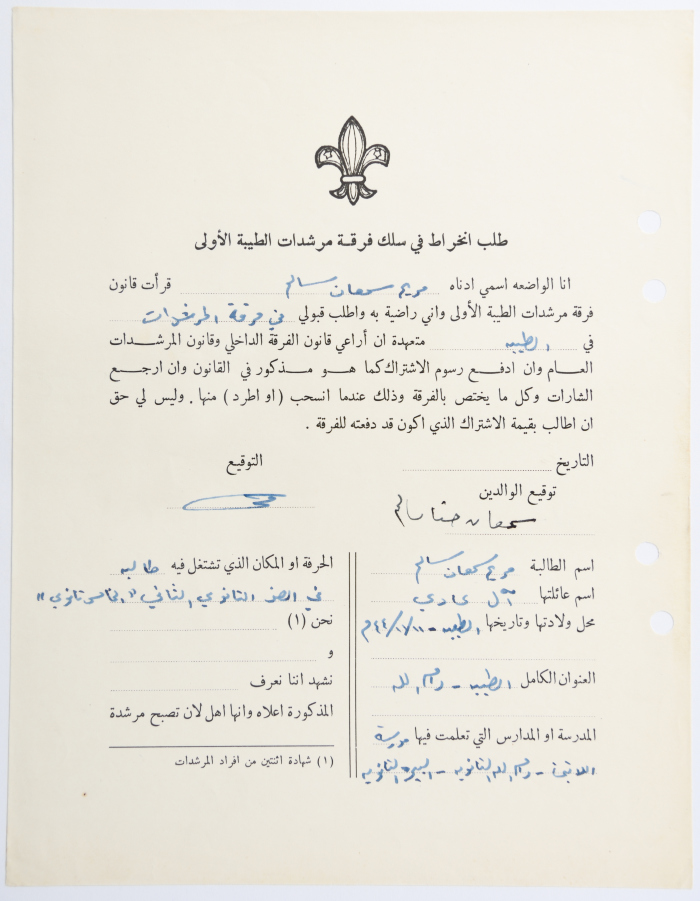 طلب انخراط في سلك فرقة مرشدات الطيبة الأولى
انا الواضعه اسمي ادناه مريم سمعان سالم قرأت قانون
فرقة مرشدات الطيبة الأولى واني راضية به واطلب قبولي في فرقة المرشدات
في الطيبه متعهدة ان أراعي قانون الفرقة الداخلي وقانون المرشدات
العام وان ادفع رسوم الاشتراك كما هو مذكور في القانون وان ارجع
الشارات وكل ما يختص بالفرقة وذلك عندما انسحب (او اطرد) منها. وليس لي حق
ان اطالب بقيمة الاشتراك الذي اكون قد دفعته للفرقة .
التاريخ
التوقيع
توقيع الوالدين
سمعان حنا سالم
اسم الطالبة مريم سمعان سالم
اسم عائلتها آل عادي
محل ولادتها وتاريخها الطيبه -
العنوان الكامل الطيبه - رام الله
المدرسة او المدارس التي تعلمت فيها مدرسة
اللاتين - رام الله الثانويه - البيره الثانويه
الحرفة او المكان الذي تشتغل فيه طالبه
في الصف الثانوي الثاني "الخامس ثانوي"
نحن (١)
و
نشهد اننا نعرف
المذكورة اعلاه وانها اهل لان تصبح مرشدة
(١) شهادة اثنتين من افراد المرشدات